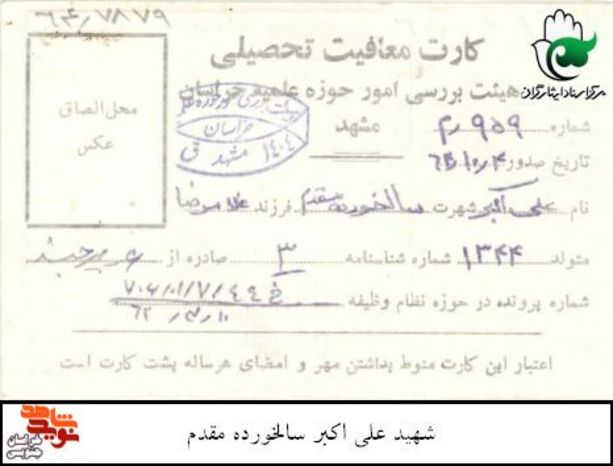 ۶۴/۷۸۷۹
کارت معافیت تحصیلی
مرکز اسناد ایثارگران
هیئت بررسی امور حوزه علمیه خراسان
محل الصاق
عکس
خراسان
۱۴۰۴ مشهد ق
مشهد
شماره ۹۵۹ م
تاریخ صدور
نام علی اکبر شهرت سالخورده مقدم فرزند غلامرضا
متولد ۱۳۴۴ شماره شناسنامه ۳ صادره از بیرجند
شماره پرونده در حوزه نظام وظیفه
اعتبار این کارت منوط بداشتن مهر و امضای هرساله پشت کارت است
شهید علی اکبر سالخورده مقدم
نوید شاهد
خراسان
جنوبی